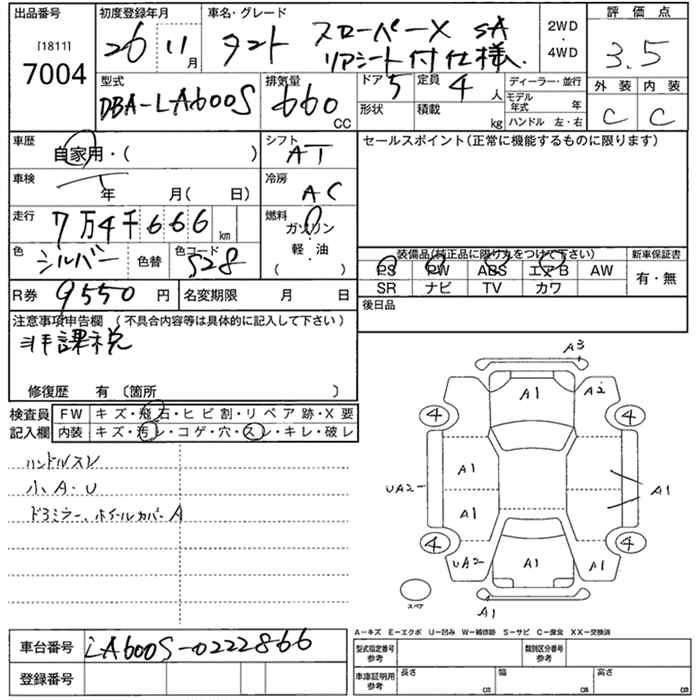 出品番号 初度登録年月 車名・グレード 2WD・4WD 評価点
[1811] 7004 26 11月 タント スローパーX SA リアシート付仕様. 3.5
型式 排気量 ドア 5 定員 4人 ディーラー・並行 外装 内装
DBA-LA600S 660 CC 形状 積載 kg モデル年式 年 ハンドル 左・右 C C
車歴 自家用・( ) シフト AT セールスポイント(正常に機能するものに限ります)
車検 年 月( 日) 冷房 AC
走行 7万4千666 km 燃料 ガソリン
色 シルバー 色替 色コード S28 軽・油 ( )
装備品(純正品に限り丸をつけて下さい) 新車保証書
PS PW ABS エアB AW 有・無
SR ナビ TV カワ
R券 9550円 名変期限 月 日 後日品
注意事項申告欄 (不具合内容等は具体的に記入して下さい)
非課税
修復歴 有 〔箇所 〕
検査員 FW キズ・飛石・ヒビ割・リペア跡・X要
記入欄 内装 キズ・汚レ・コゲ・穴・スレ・キレ・破レ
ハンドルスレ
小、A・U
ドミラー、ホイールカバーA
A3
A1 A2
4 4
A1
UA2 A1
A1
4 4
UA2 A1 A1
スペア A1
A-キズ E-エクボ U-凹み W-補修跡 S-サビ C-腐食 XX-交換済
車台番号 LA600S-0222866 型式指定番号 参考 類別区分番号 参考
登録番号 車庫証明用 参考 長さ cm 幅 cm 高さ cm